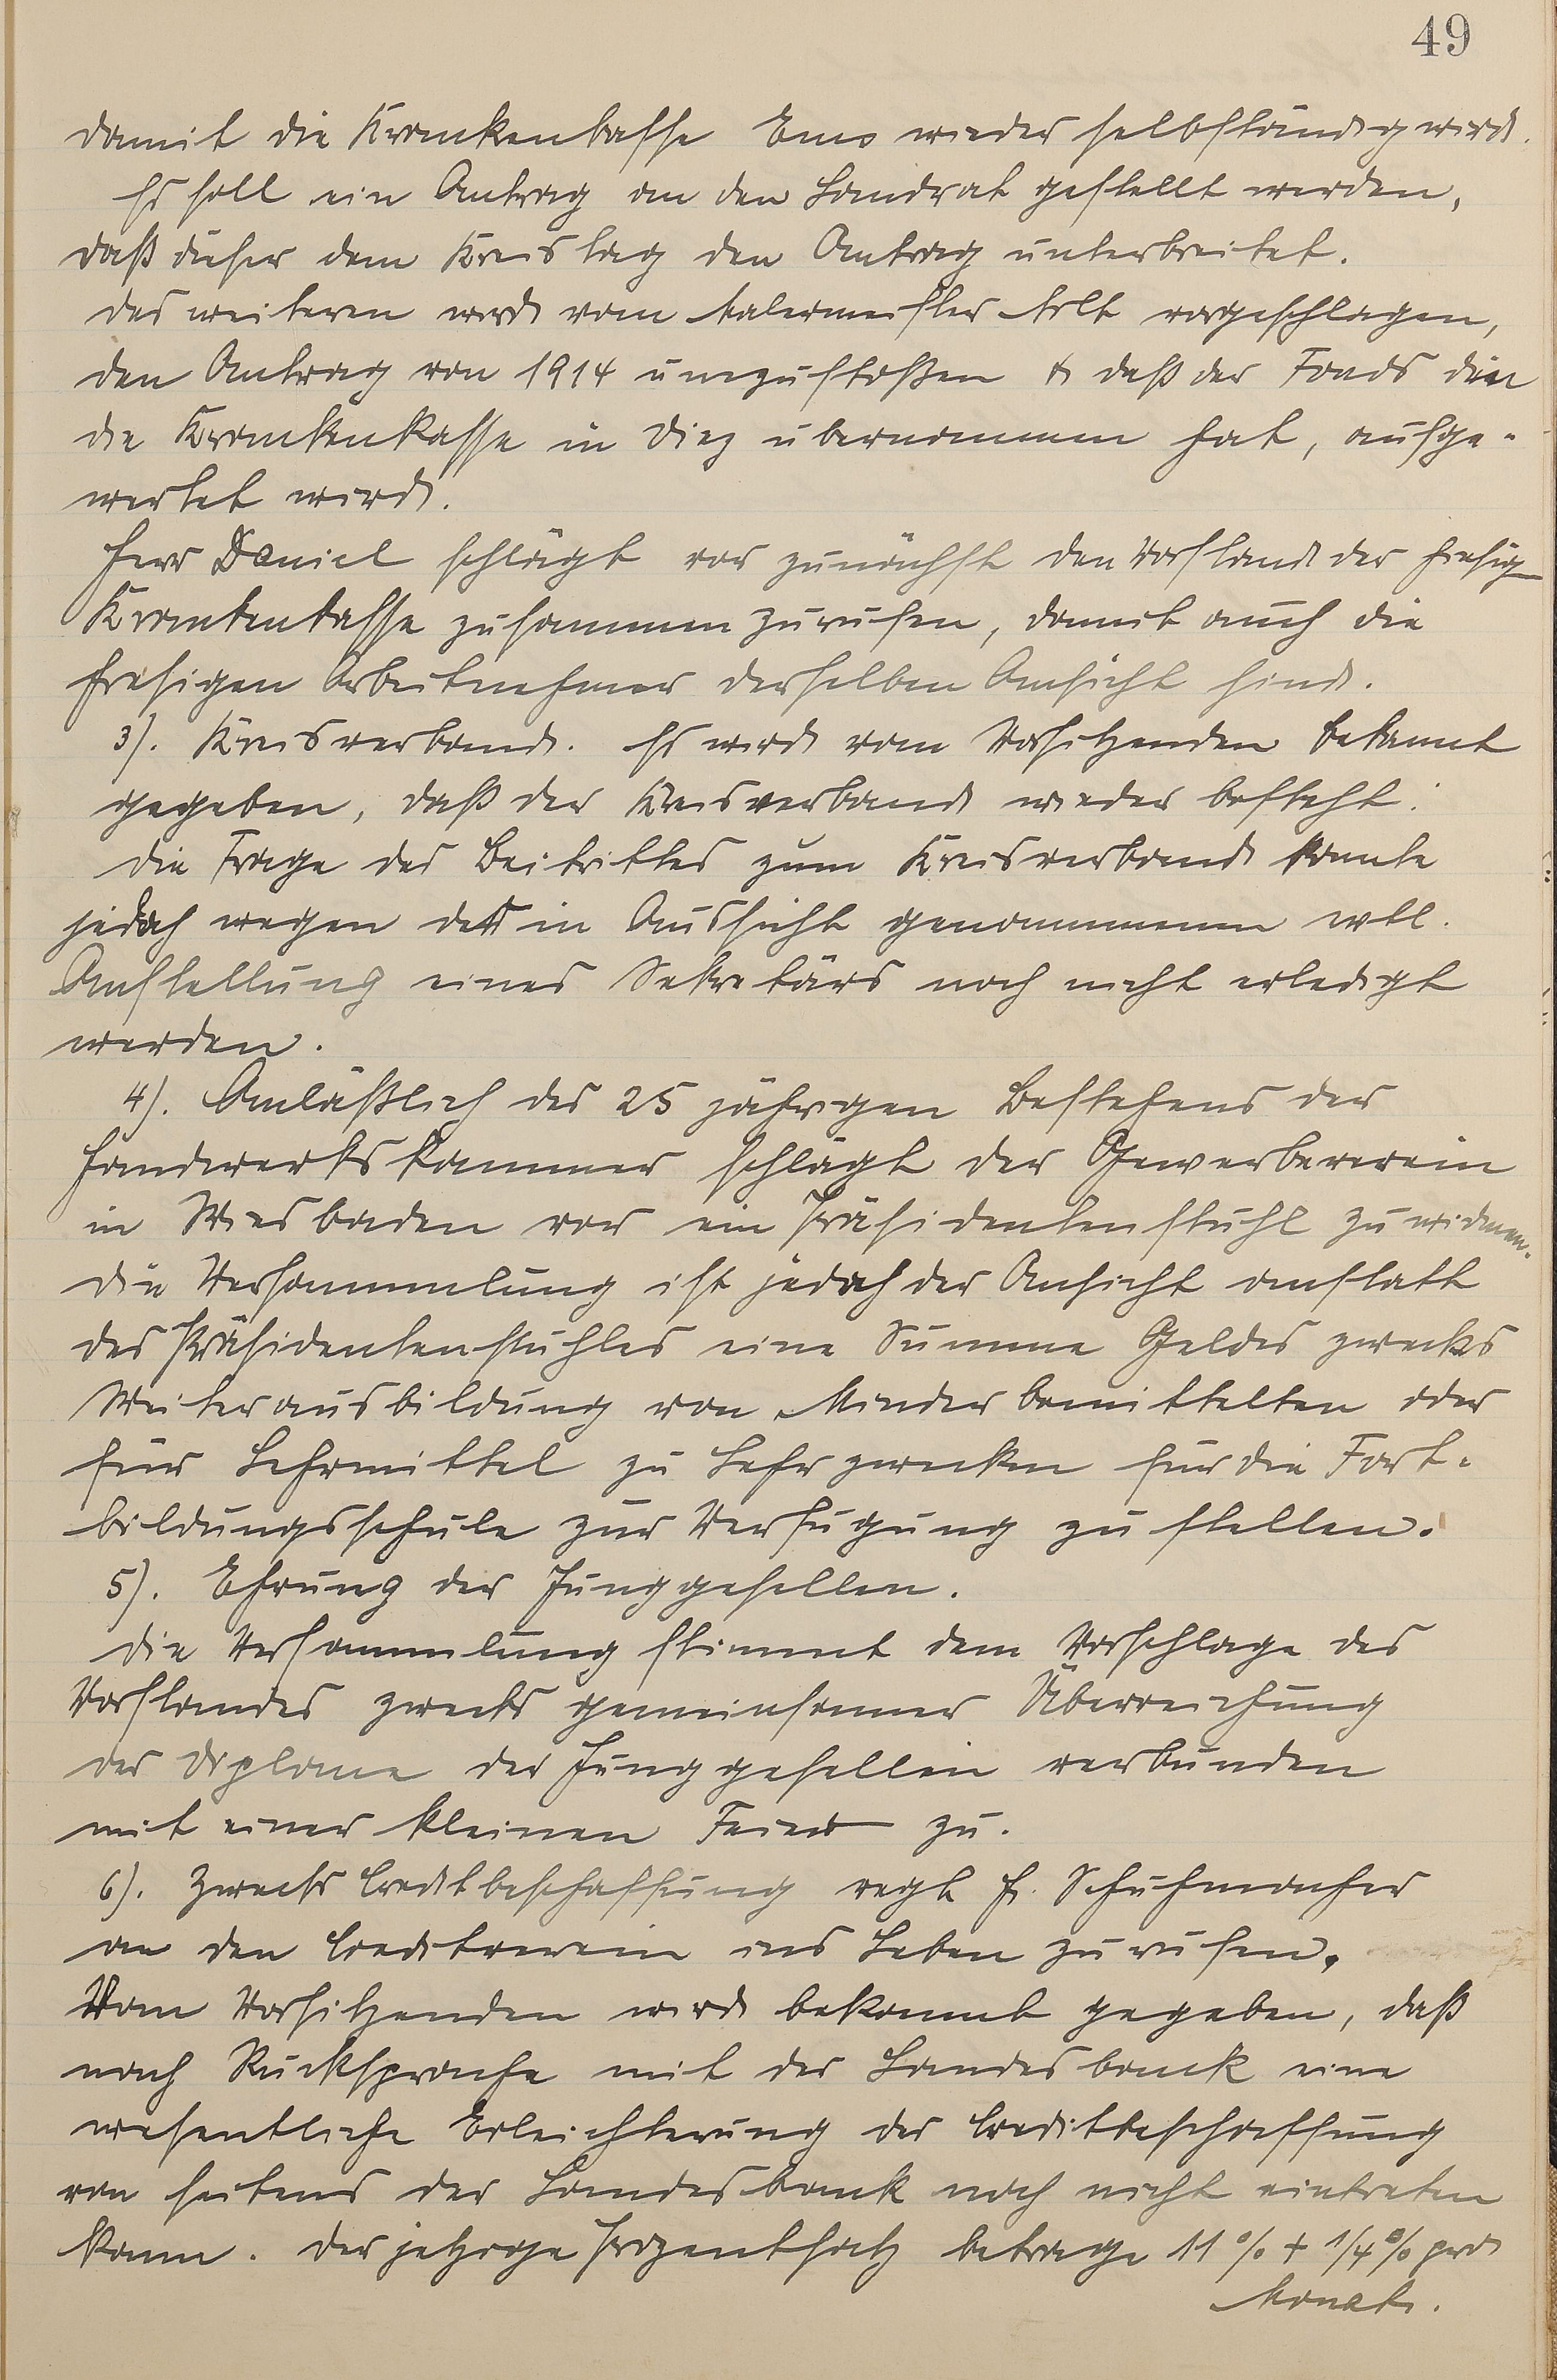 49
damit die Krankenkasse Ems wieder selbständig wird.
Es soll ein Antrag an den Landrat gestellt werden,
daß dieser dem Kreistag den Antrag unterbreitet.
Des weiteren wird vom Malermeister Arlt vorgeschlagen,
den Antrag von 1914 umzustoßen & daß der Fonds den
die Krankenkasse in Diez übernommen hat, aufge-
wertet wird.
Herr Daniel schlägt vor zunächst den Vorstand der hiesig
Krankenkasse zusammen zurufen, damit auch die
hiesigen Arbeitnehmer derselben Ansicht sind.
3). Kreisverband. Es wird vom Vorsitzenden bekannt
gegeben, daß der Kreisverband wieder besteht.
Die Frage des Beitrittes zum Kreisverband konnte
jedoch wegen der in Aussicht genommenen evtl.
Anstellung eines Sekretärs noch nicht erledigt
werden.
4). Anläßlich des 25 jährigen Bestehens der
Handwerkskammer schlägt der Gewerbeverein
in Wiesbaden vor ein Präsidentenstuhl zu widmen.
Die Versammlung ist jedoch der Ansicht anstatt
des Präsidentenstuhles eine Summe Geldes zwecks
Weiterausbildung von Minderbemittelten oder
für Lehrmittel zu Lehrzwecken für die Fort-
bildungsschule zur Verfügung zu stellen.
5). Ehrung der Junggesellen.
Die Versammlung stimmt dem Vorschlage des
Vorstandes zwecks gemeinsamer Überreichung
der Diplome der Junggesellen verbunden
mit einer kleinen Feier zu.
6). Zwecks Creditbeschaffung regt H. Schuhmacher
an den Creditverein ins Leben zu rufen.
Vom Vorsitzenden wird bekannt gegeben, daß
nach Rücksprache mit der Landesbank eine
wesentliche Erleichterung der Creditbeschaffung
von seitens der Landesbank noch nicht eintreten
kann. Der jetzige Prozentsatz betrage 11 % + 1/4 % pro
Monat.